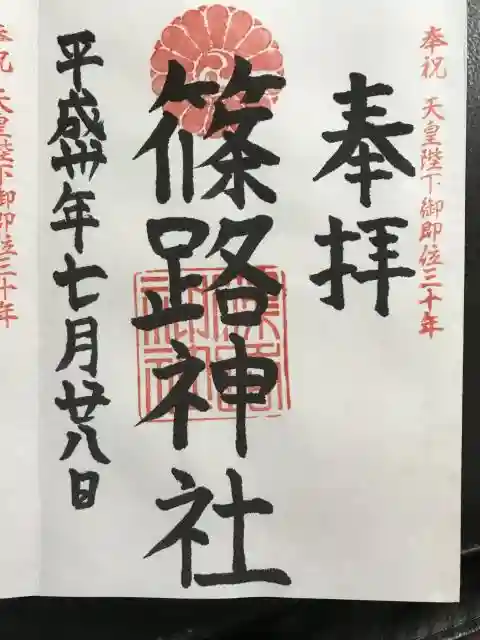 奉祝 天皇陛下御即位三十年
奉拝
篠路神社
篠路神社
平成卅年七月廿八日
奉祝 天皇陛下御即位三十年